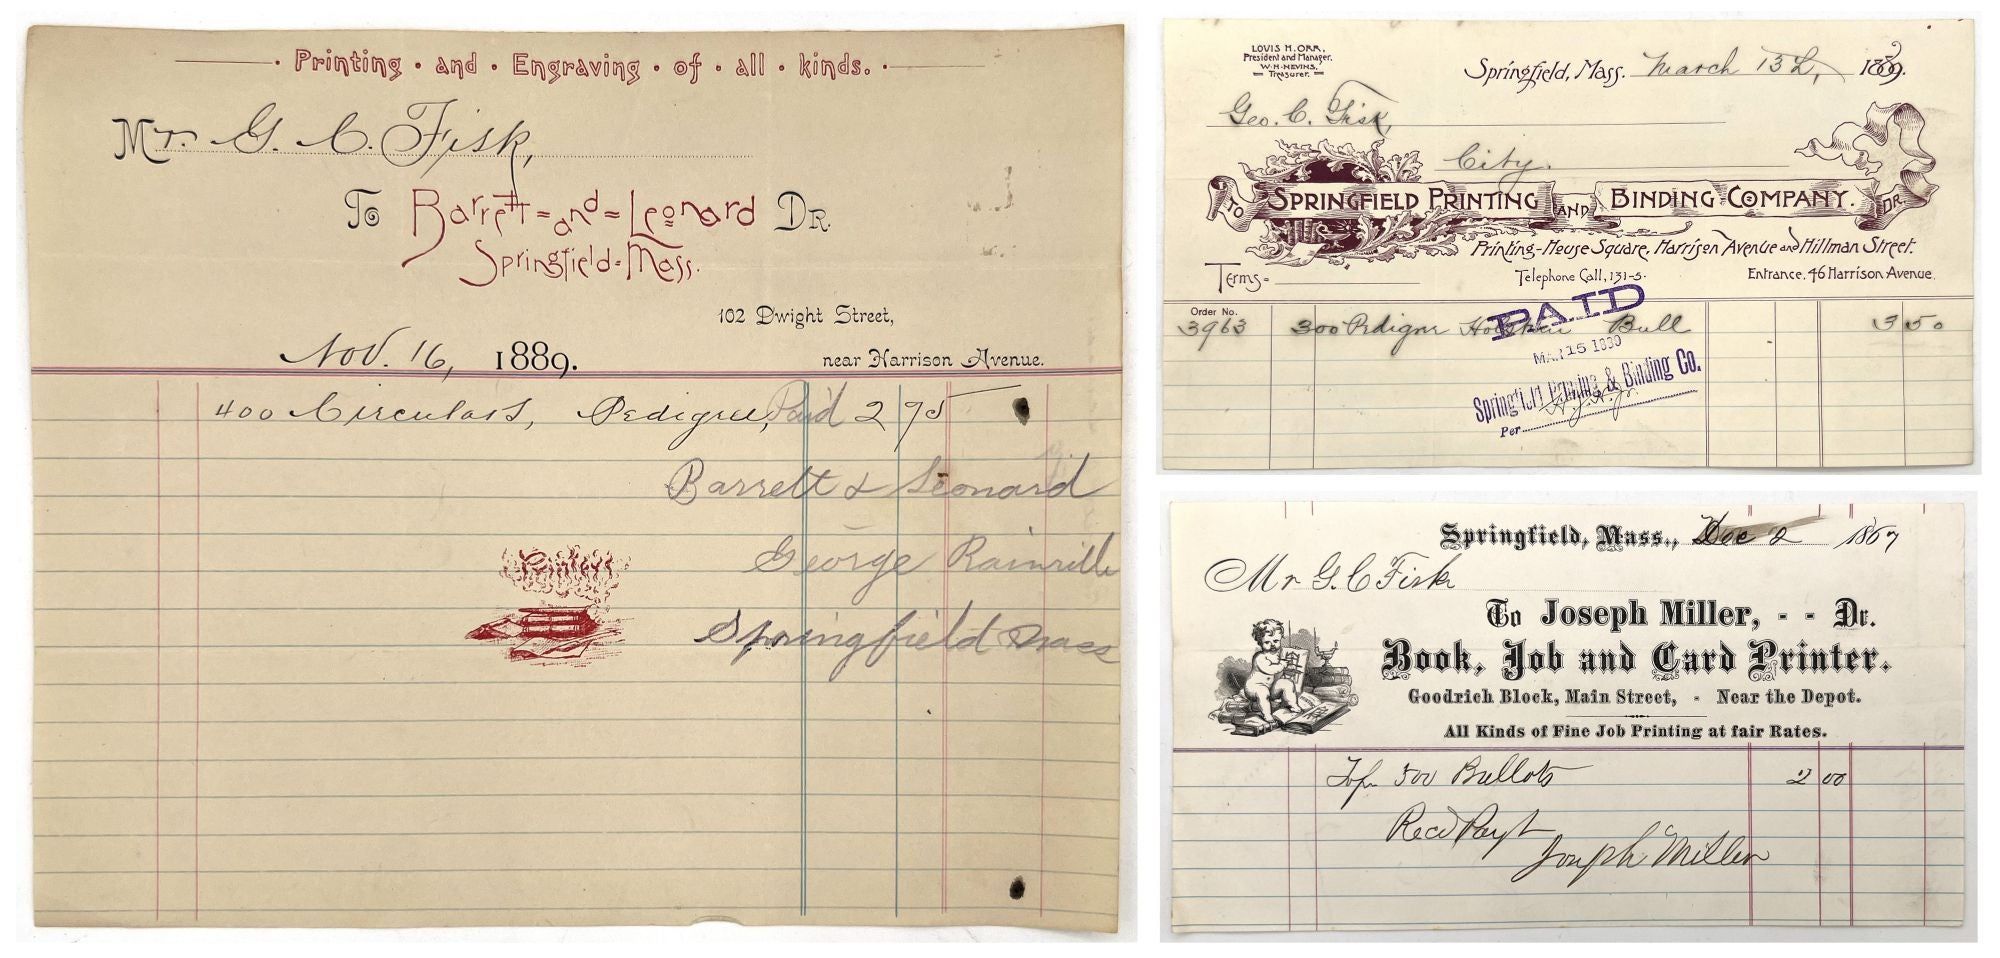 · Printing · and · Engraving · of · all · kinds. ·
Mr. G. C. Fisk,
To Barrett = and = Leonard Dr.
Springfield = Mass.
102 Dwight Street,
near Harrison Avenue.
Nov. 16, 1889.
400 Circulars, Pedigree, Paid 2 95
Barrett & Leonard
George Rainville
Springfield Mass
Printers
LOUIS H. ORR,
President and Manager.
W. H. NEVINS,
Treasurer.
Springfield, Mass. March 13th, 1889.
Geo. C. Fisk,
City.
TO SPRINGFIELD PRINTING AND BINDING COMPANY. DR.
Printing-House Square, Harrison Avenue and Hillman Street.
Terms- Telephone Call, 131-5. Entrance, 46 Harrison Avenue.
Order No.
3963 300 Pedigree Bull 3 50
PAID
MAR 15 1890
Springfield Printing & Binding Co.
Per
Springfield, Mass., Dec 2 1867
Mr G. C Fisk
To Joseph Miller, - - Dr.
Book, Job and Card Printer.
Goodrich Block, Main Street, - Near the Depot.
All Kinds of Fine Job Printing at fair Rates.
500 Ballots 2 00
Recd Payt
Joseph Miller